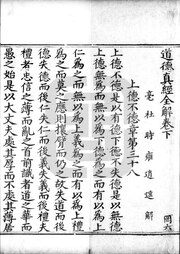 道德真經全解卷下
亳社時雍逍遙解
上德不德章第三十八
上德不德是以有德下德不失德是以無德
上德無爲而無以爲下德爲之而有以爲上
仁爲之而無以爲上義爲之而有以爲上禮
爲之而莫之應則攘臂而仍之故失道而後
德失德而後仁失仁而後義失義而後禮夫
禮者忠信之薄而亂之首前識者道之華而
愚之始是以大丈夫處其厚而不處其薄居